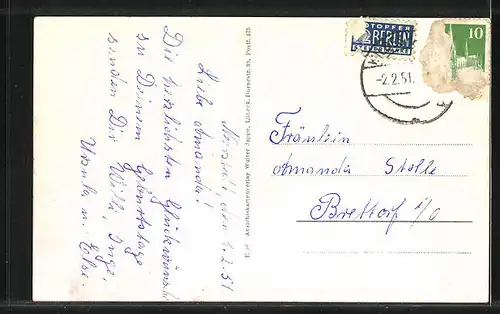 Neusteft, den 1.2.51
Liebe Amanda!
Die herzlichsten Glückwünsche
zu Deinem Geburtstage
senden Dir Willi, Inge,
Ursula u. Else.
Ansichtskartenverlag Walter Jappe, Lübeck, Dornestr. 35, Postf. 475
NOTOPFER
2 BERLIN
STEUERMARKE
10
-2.2.51.
Fräulein
Amanda Stolle
Brettorf i/O